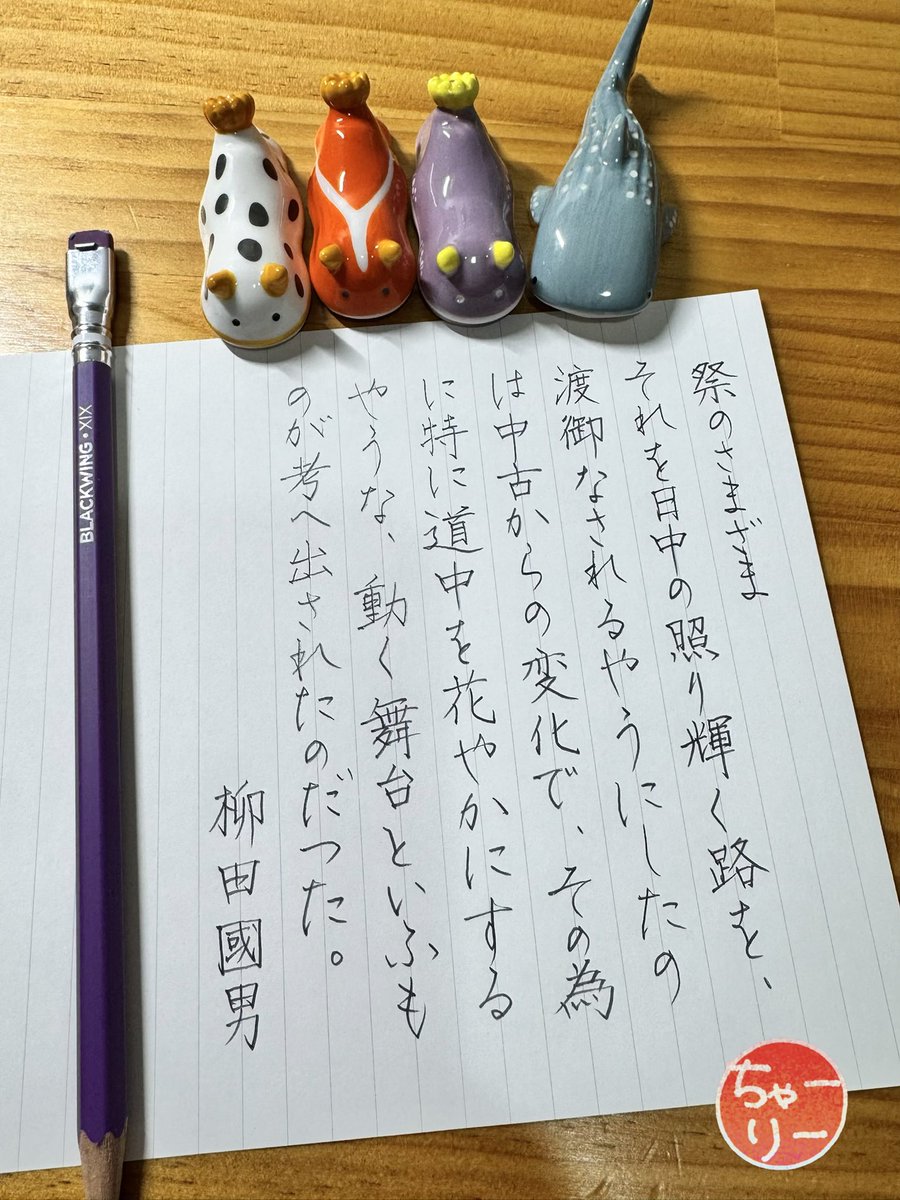 祭のさまざま
それを日中の照り輝く路を、
渡御なされるやうにしたの
は中古からの変化で、その為
に特に道中を花やかにする
やうな、動く舞台といふも
のが考へ出されたのだつた。
柳田國男
BLACKWING • XIX
ちゃー
りー